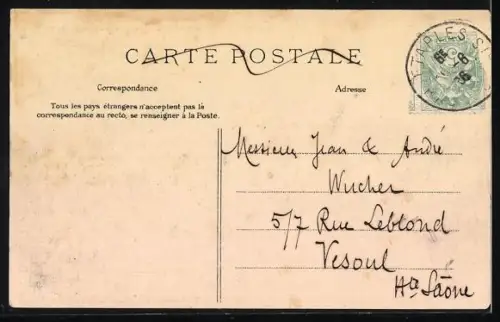 CARTE POSTALE
Correspondance
Adresse
Tous les pays étrangers n'acceptent pas la
correspondance au recto, se renseigner à la Poste.
ETAPLES
Messieurs Jean & André
Wucher
5/7 Rue Leblond
Vesoul
Hte Saône